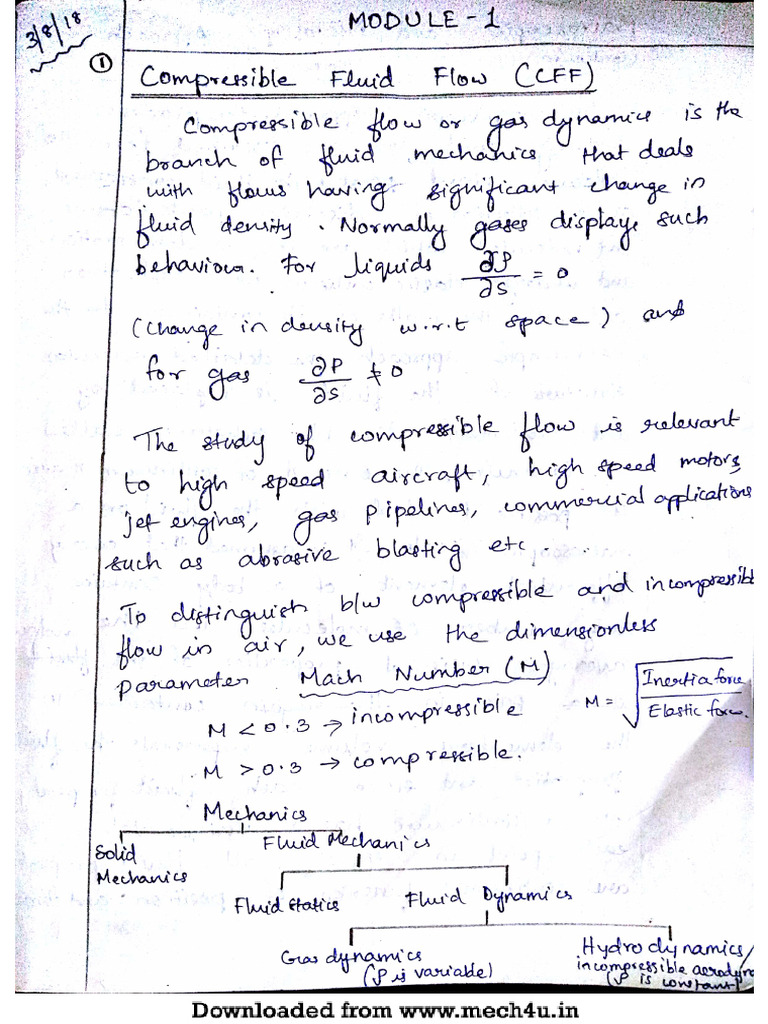 3/8/18
MODULE-1
①
Compressible Fluid Flow (CFF)
Compressible flow or gas dynamics is the
branch of fluid mechanics that deals
with flows having significant change in
fluid density. Normally gases display such
behaviour. For liquids ∂ρ/∂s = 0
(change in density w.r.t space) and
for gas ∂P/∂s ≠ 0
The study of compressible flow is relevant
to high speed aircraft, high speed motors,
jet engines, gas pipelines, commercial applications
such as abrasive blasting etc.
To distinguish b/w compressible and incompressibl
flow in air, we use the dimensionless
parameter Mach Number (M)
M = √(Inertia force / Elastic force.)
M < 0.3 → incompressible
M > 0.3 → compressible.
Mechanics
Solid Mechanics
Fluid Mechanics
Fluid statics
Fluid Dynamics
Gas dynamics
(ρ is variable)
Hydrodynamics/
incompressible aerodyna
(ρ is constant)
Downloaded from www.mech4u.in